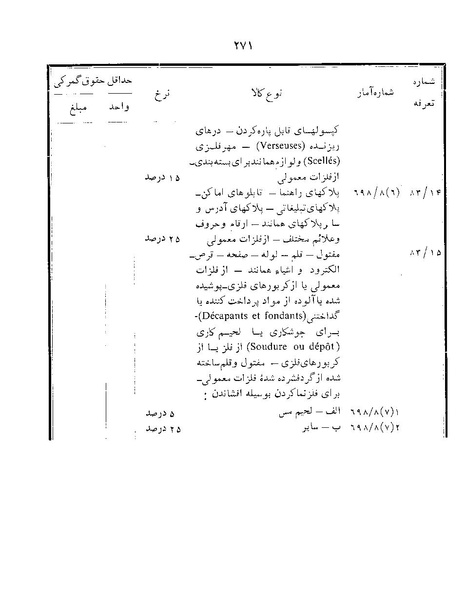 ۲۷۱
شماره تعرفه شماره‌آمار نوع کالا نرخ حداقل حقوق گمرکی
واحد مبلغ
کپسولهای قابل پاره‌کردن – درهای
ریزنده (Verseuses) – مهرفلزی
(Scellés) ولوازم‌همانندبرای‌بسته‌بندی–
ازفلزات معمولی ۱۵ درصد
۸۳/۱۴ ۶۹۸/۸(۶) پلاکهای راهنما – تابلوهای اماکن–
پلاکهای‌تبلیغاتی – پلاکهای آدرس و
سایرپلاکهای همانند – ارقام وحروف
وعلائم مختلف – ازفلزات معمولی ۲۵ درصد
۸۳/۱۵ مفتول – قلم – لوله – صفحه – قرص–
الکترود و اشیاء همانند – از فلزات
معمولی یا ازکربورهای فلزی–پوشیده
شده یاآلوده از مواد پرداخت کننده یا
گداختنی(Décapants et fondants)–
برای جوشکاری یا لحیم‌کاری
(Soudure ou dépôt) از فلز یا از
کربورهای‌فلزی – مفتول وقلم‌ساخته
شده ازگردفشرده شدهٔ فلزات معمولی–
برای فلزنماکردن بوسیله افشاندن :
۶۹۸/۸(۷)۱ الف – لحیم مس ۵ درصد
۶۹۸/۸(۷)۲ ب – سایر ۲۵ درصد